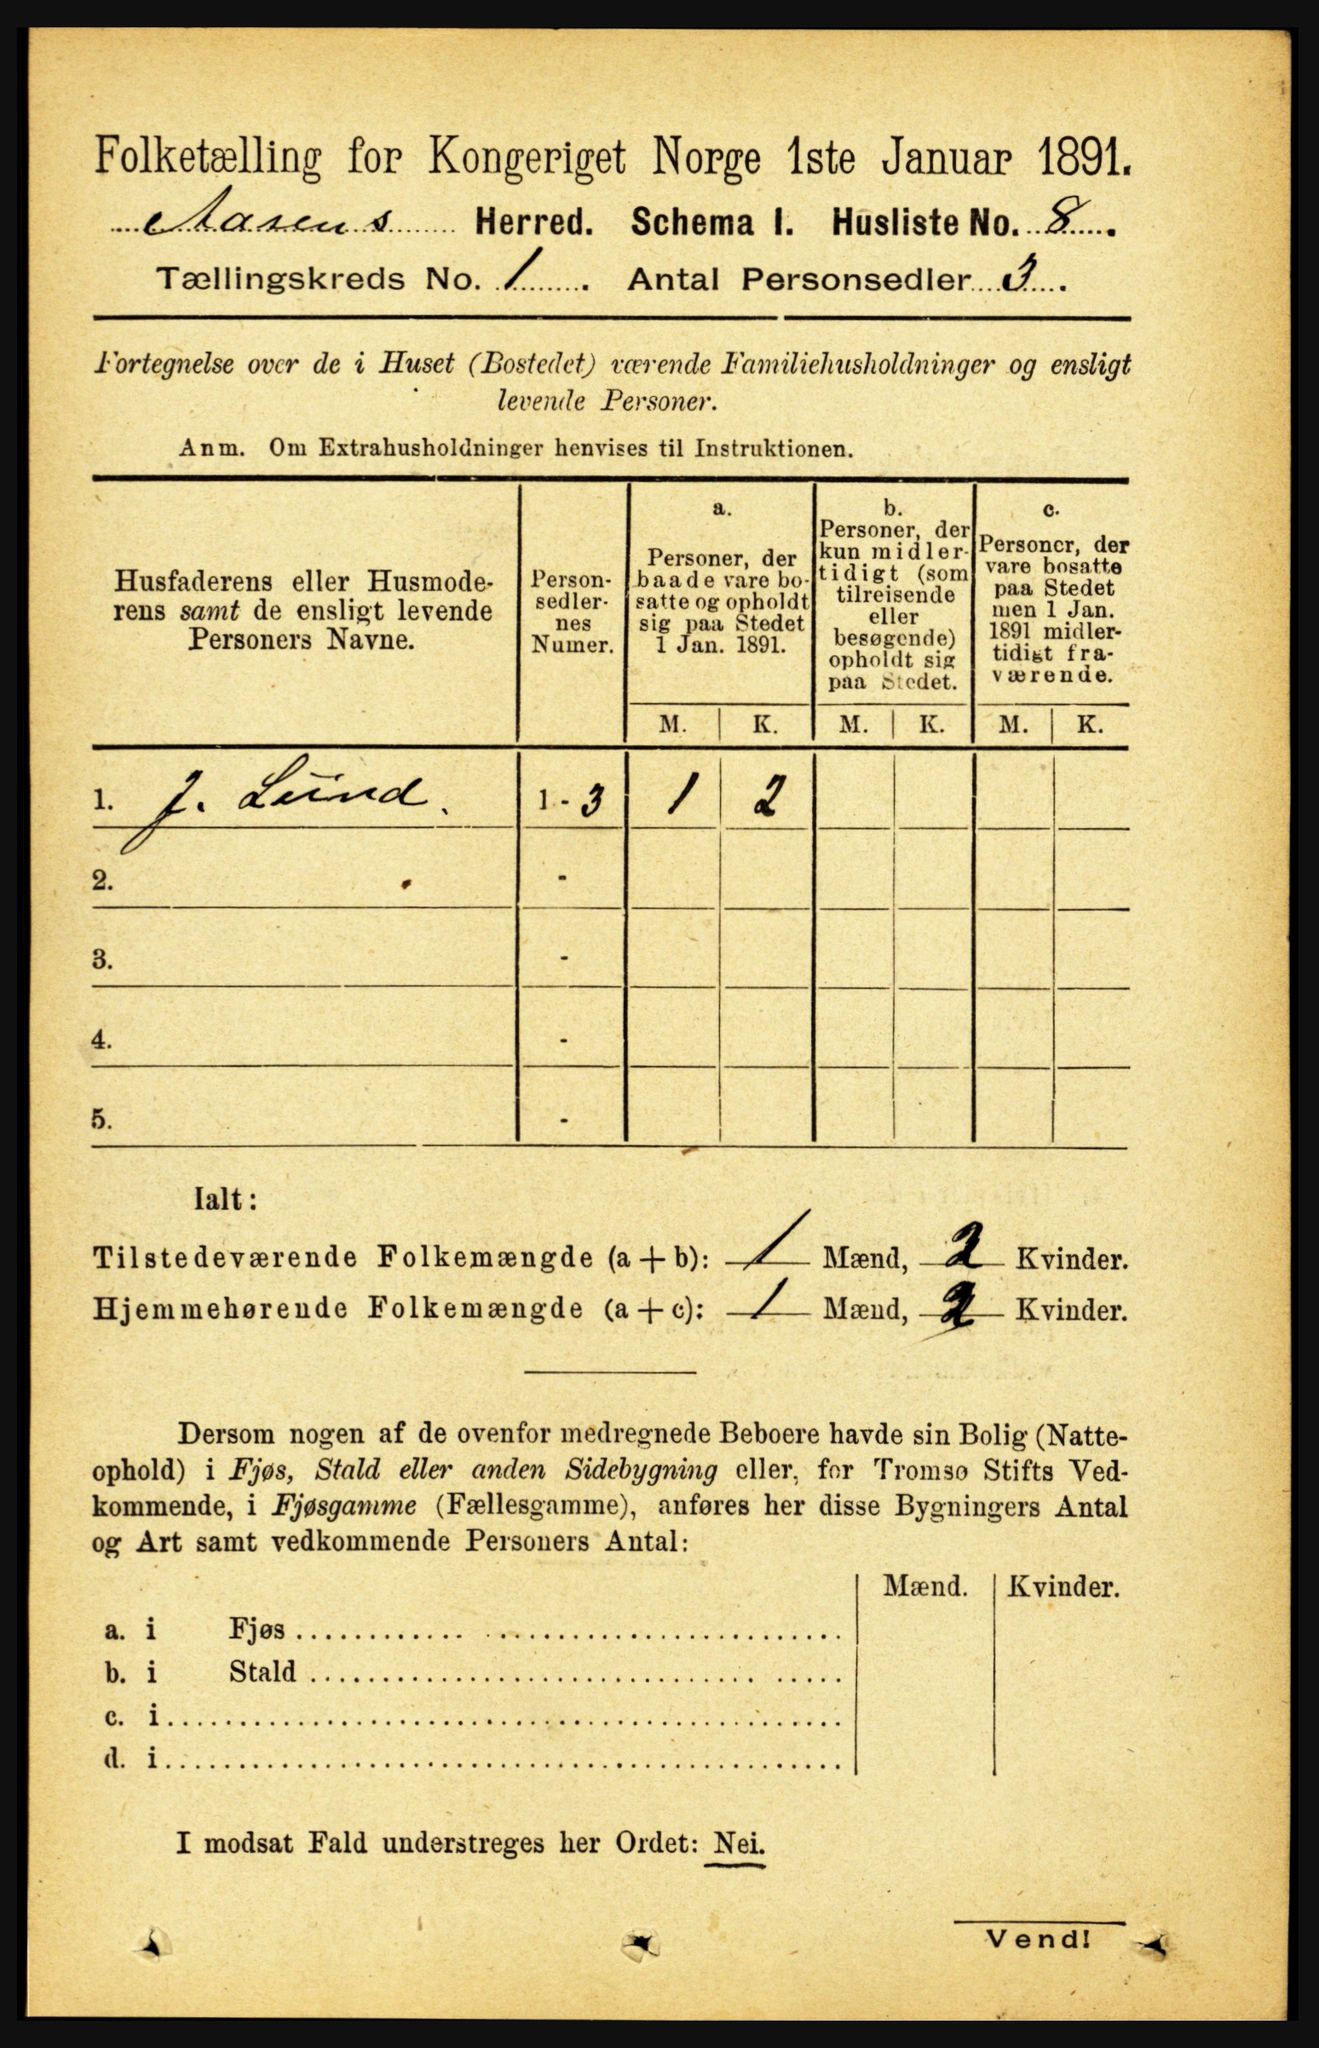 Folketælling for Kongeriget Norge 1ste Januar 1891.
Aasens Herred. Schema I. Husliste No. 8.
Tællingskreds No. 1. Antal Personsedler 3.
Fortegnelse over de i Huset (Bostedet) værende Familiehusholdninger og ensligt
levende Personer.
Anm. Om Extrahusholdninger henvises til Instruktionen.
Husfaderens eller Husmode-
rens samt de ensligt levende
Personers Navne.
Person-
sedler-
nes
Numer.
a.
Personer, der
baade vare bo-
satte og opholdt
sig paa Stedet
1 Jan. 1891.
b.
Personer, der
kun midler-
tidigt (som
tilreisende
eller
besøgende)
opholdt sig
paa Stedet.
c.
Personer, der
vare bosatte
paa Stedet
men 1 Jan.
1891 midler-
tidigt fra-
værende.
M. K. M. K. M. K.
1. J. Lund. 1 - 3 1 2
2. -
3. -
4. -
5. -
Ialt:
Tilstedeværende Folkemængde (a + b): 1 Mænd, 2 Kvinder.
Hjemmehørende Folkemængde (a + c): 1 Mænd, 2 Kvinder.
Dersom nogen af de ovenfor medregnede Beboere havde sin Bolig (Natte-
ophold) i Fjøs, Stald eller anden Sidebygning eller, for Tromsø Stifts Ved-
kommende, i Fjøsgamme (Fællesgamme), anføres her disse Bygningers Antal
og Art samt vedkommende Personers Antal:
Mænd. Kvinder.
a. i Fjøs
b. i Stald
c. i
d. i
I modsat Fald understreges her Ordet: Nei.
Vend!